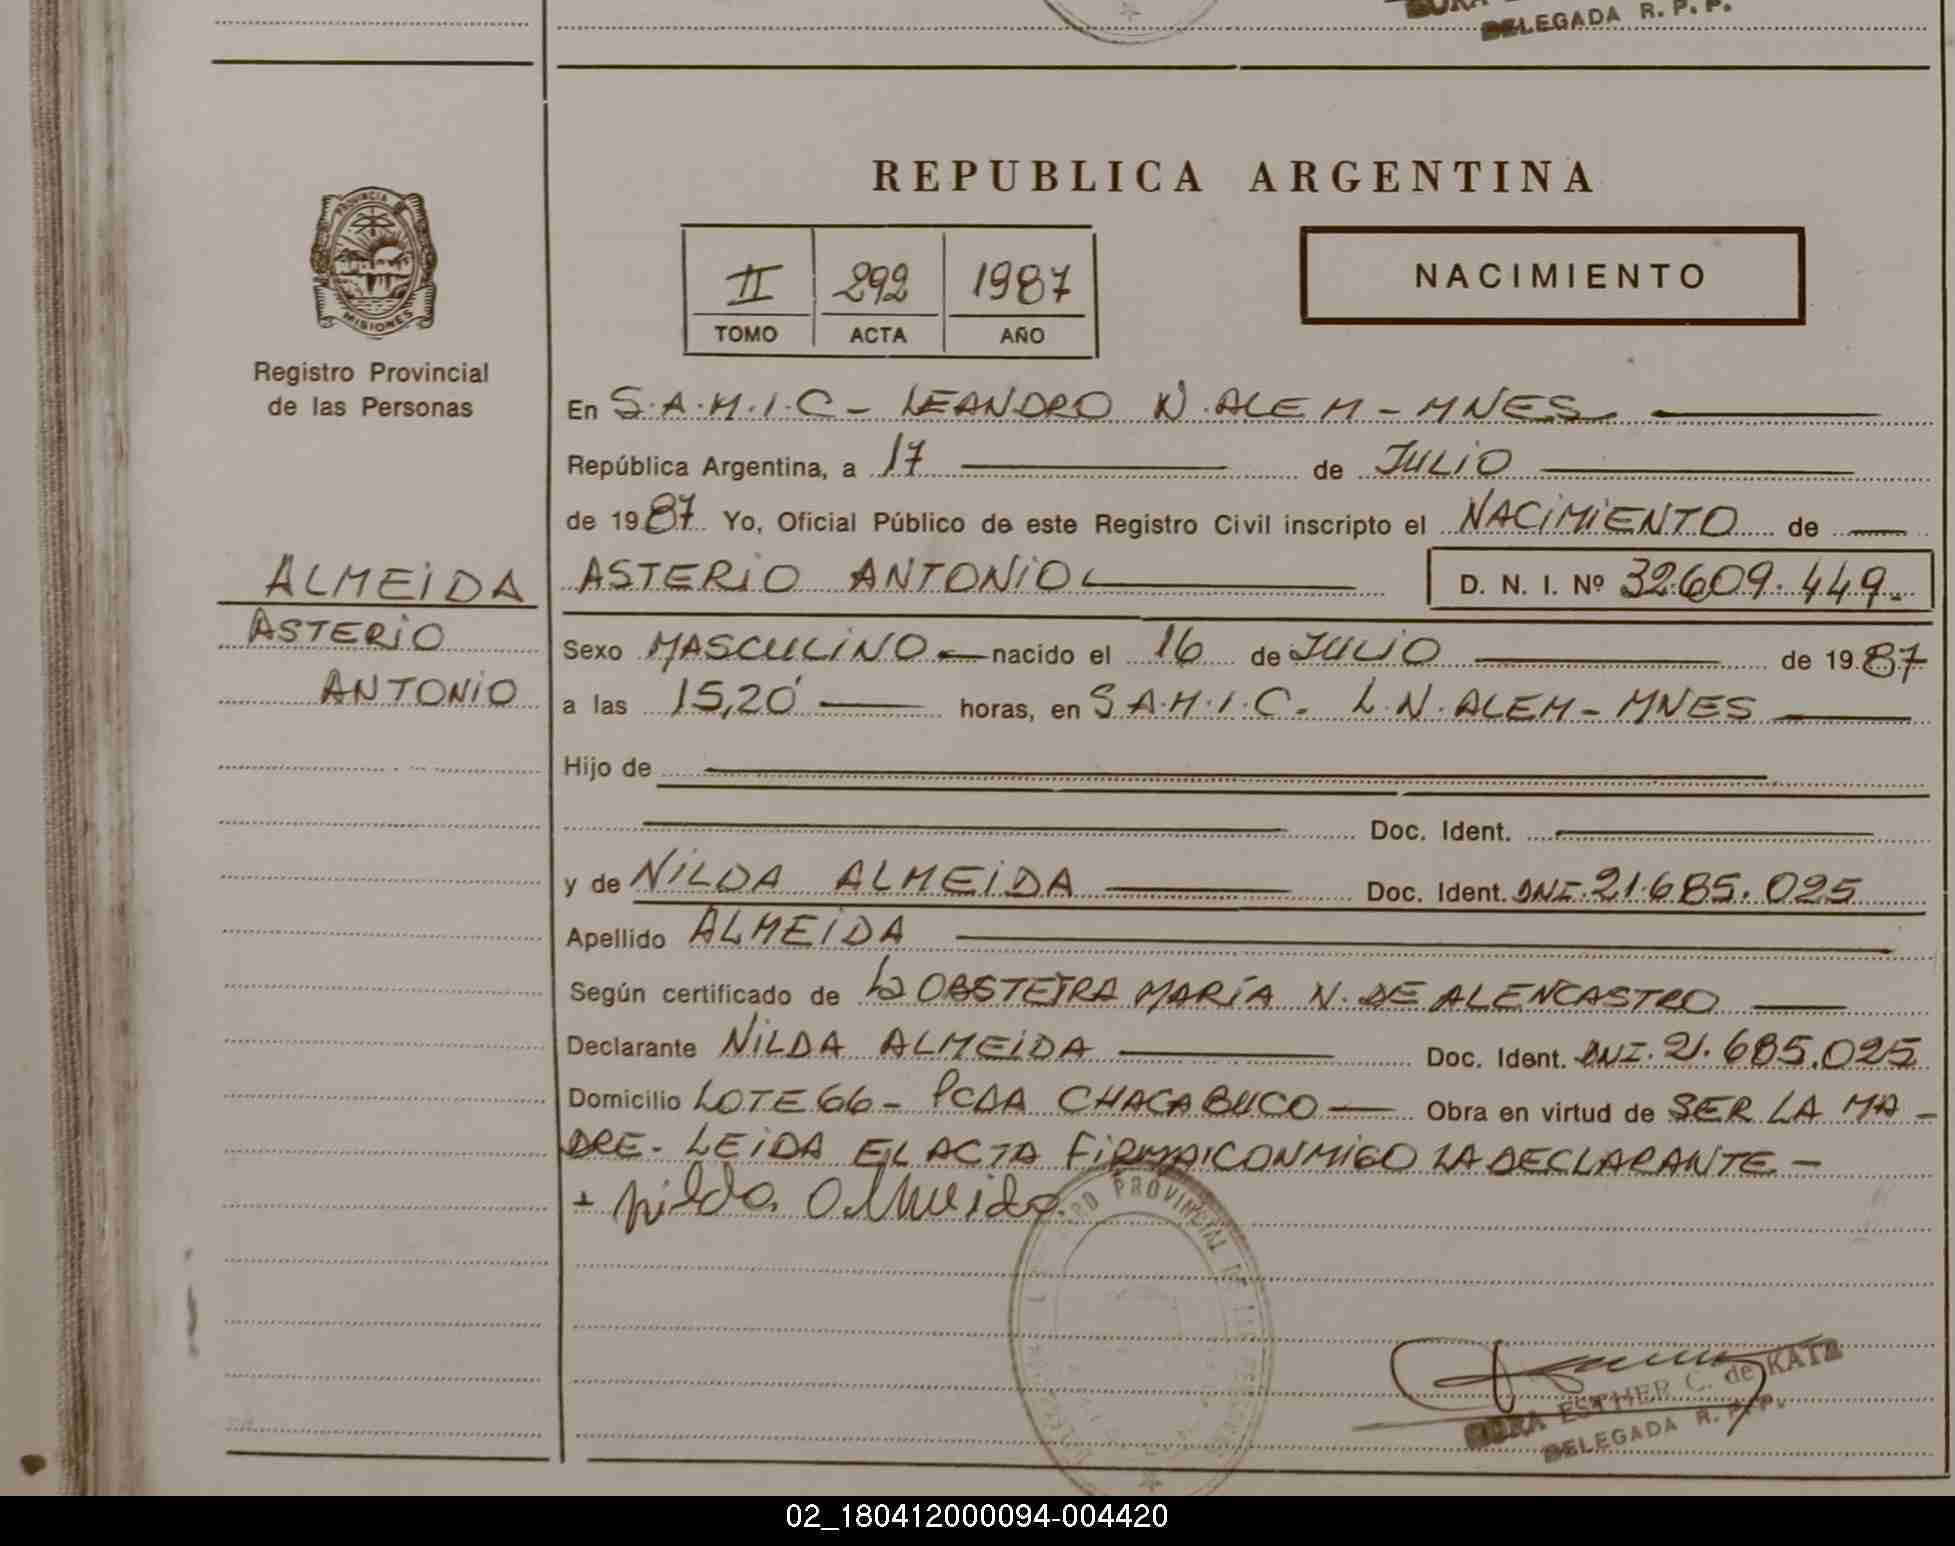 DELEGADA R. P. P.
REPUBLICA ARGENTINA
PROVINCIA DE
MISIONES
Registro Provincial
de las Personas
II 292 1987
TOMO ACTA AÑO
NACIMIENTO
En S.A.M.I.C - LEANDRO N. ALEM - MNES
República Argentina, a 17 de JULIO
de 1987 Yo, Oficial Público de este Registro Civil inscripto el NACIMIENTO de
ALMEIDA
ASTERIO
ANTONIO
ASTERIO ANTONIO D. N. I. Nº 32.609.449.
Sexo MASCULINO nacido el 16 de JULIO de 1987
a las 15,20 horas, en S.A.M.I.C. L.N. ALEM - MNES
Hijo de
Doc. Ident.
y de NILDA ALMEIDA Doc. Ident. DNI. 21.685.025
Apellido ALMEIDA
Según certificado de la OBSTETRA MARÍA N. DE ALENCASTRO
Declarante NILDA ALMEIDA Doc. Ident. DNI. 21.685.025
Domicilio LOTE 66 - PCDA CHACABUCO Obra en virtud de SER LA MA-
DRE - LEIDA EL ACTA FIRMA CONMIGO LA DECLARANTE -
+ Nilda Almeida.
REGISTRO PROVINCIAL DE LAS PERSONAS
DORA ESTHER C. de KATZ
DELEGADA R. P. P.
02_180412000094-004420